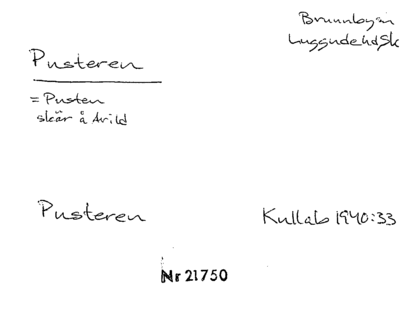 Brunnby sn
Luggude hd Sk
Pusteren
= Pusten
skär å Arild
Pusteren
Kullab 1940:33
Nr 21750